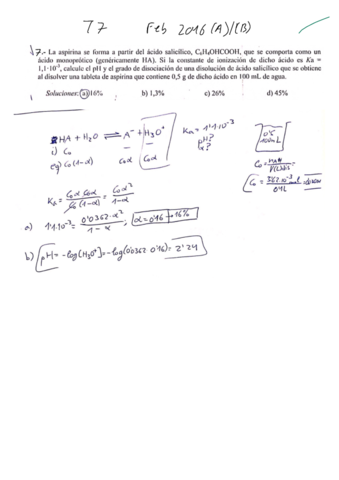 T7 Feb 2016 (A)/(B)
17.- La aspirina se forma a partir del ácido salicílico, C₆H₄OHCOOH, que se comporta como un
ácido monoprótico (genéricamente HA). Si la constante de ionización de dicho ácido es Ka =
1,1·10⁻³, calcule el pH y el grado de disociación de una disolución de ácido salicílico que se obtiene
al disolver una tableta de aspirina que contiene 0,5 g de dicho ácido en 100 mL de agua.
Soluciones: a) 16% b) 1,3% c) 26% d) 45%
HA + H₂O ⇌ A⁻ + H₃O⁺ Ka = 1'1·10⁻³
i) C₀ — — pH? α? 0'5 100mL
eq) C₀(1-α) C₀α C₀α
Ka = C₀α C₀α / C₀(1-α) = C₀α² / 1-α
a) 1'1·10⁻³ = 0'0362·α² / 1-α ; α = 0'16 → 16%
b) pH = -log(H₃O⁺) = -log(0'0362·0'16) = 2'24